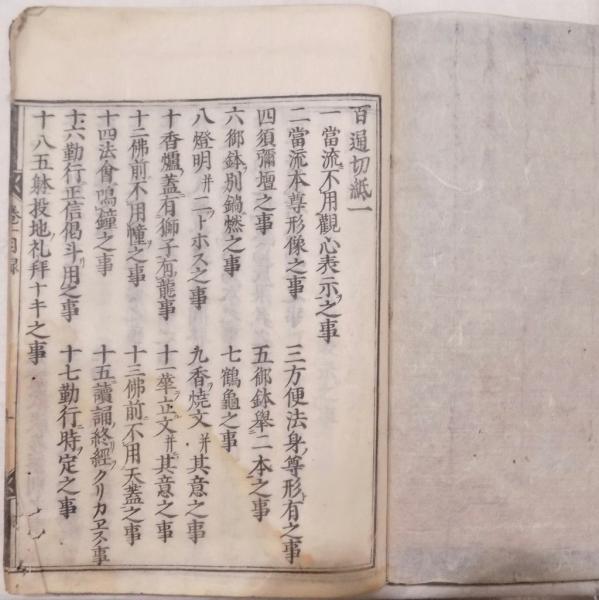 百通切紙一
一當流不用觀心表示之事
二當流本尊形像之事　三方便法身尊形有之事
四須彌壇之事　五御鉢舉二本之事
六御鉢別鍋燃之事　七鶴龜之事
八燈明并二ートホス之事　九香燒文并其意之事
十香爐蓋有獅子有龍事　十一華立文并其意之事
十二佛前不用幢之事　十三佛前不用天蓋之事
十四法會鳴鐘之事　十五讀誦終經クリカヱス事
十六勤行正信偈斗用之事　十七勤行時定之事
十八五躰投地礼拜ナキ之事
卷一目録